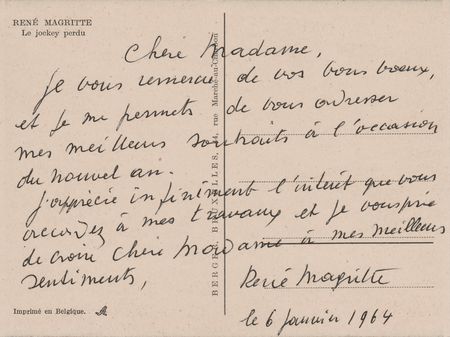 RENÉ MAGRITTE
Le jockey perdu
Chère Madame,
Je vous remercie de vos bons voeux,
et je me permets de vous adresser
mes meilleurs souhaits à l'occasion
du nouvel an.
J'apprécie infiniment l'intérêt que vous
accordez à mes travaux et je vous prie
de croire Chère Madame à mes meilleurs
sentiments,
René Magritte
le 6 janvier 1964
Imprimé en Belgique.
BERGER, BRUXELLES, 4, rue Marché-au-Charbon